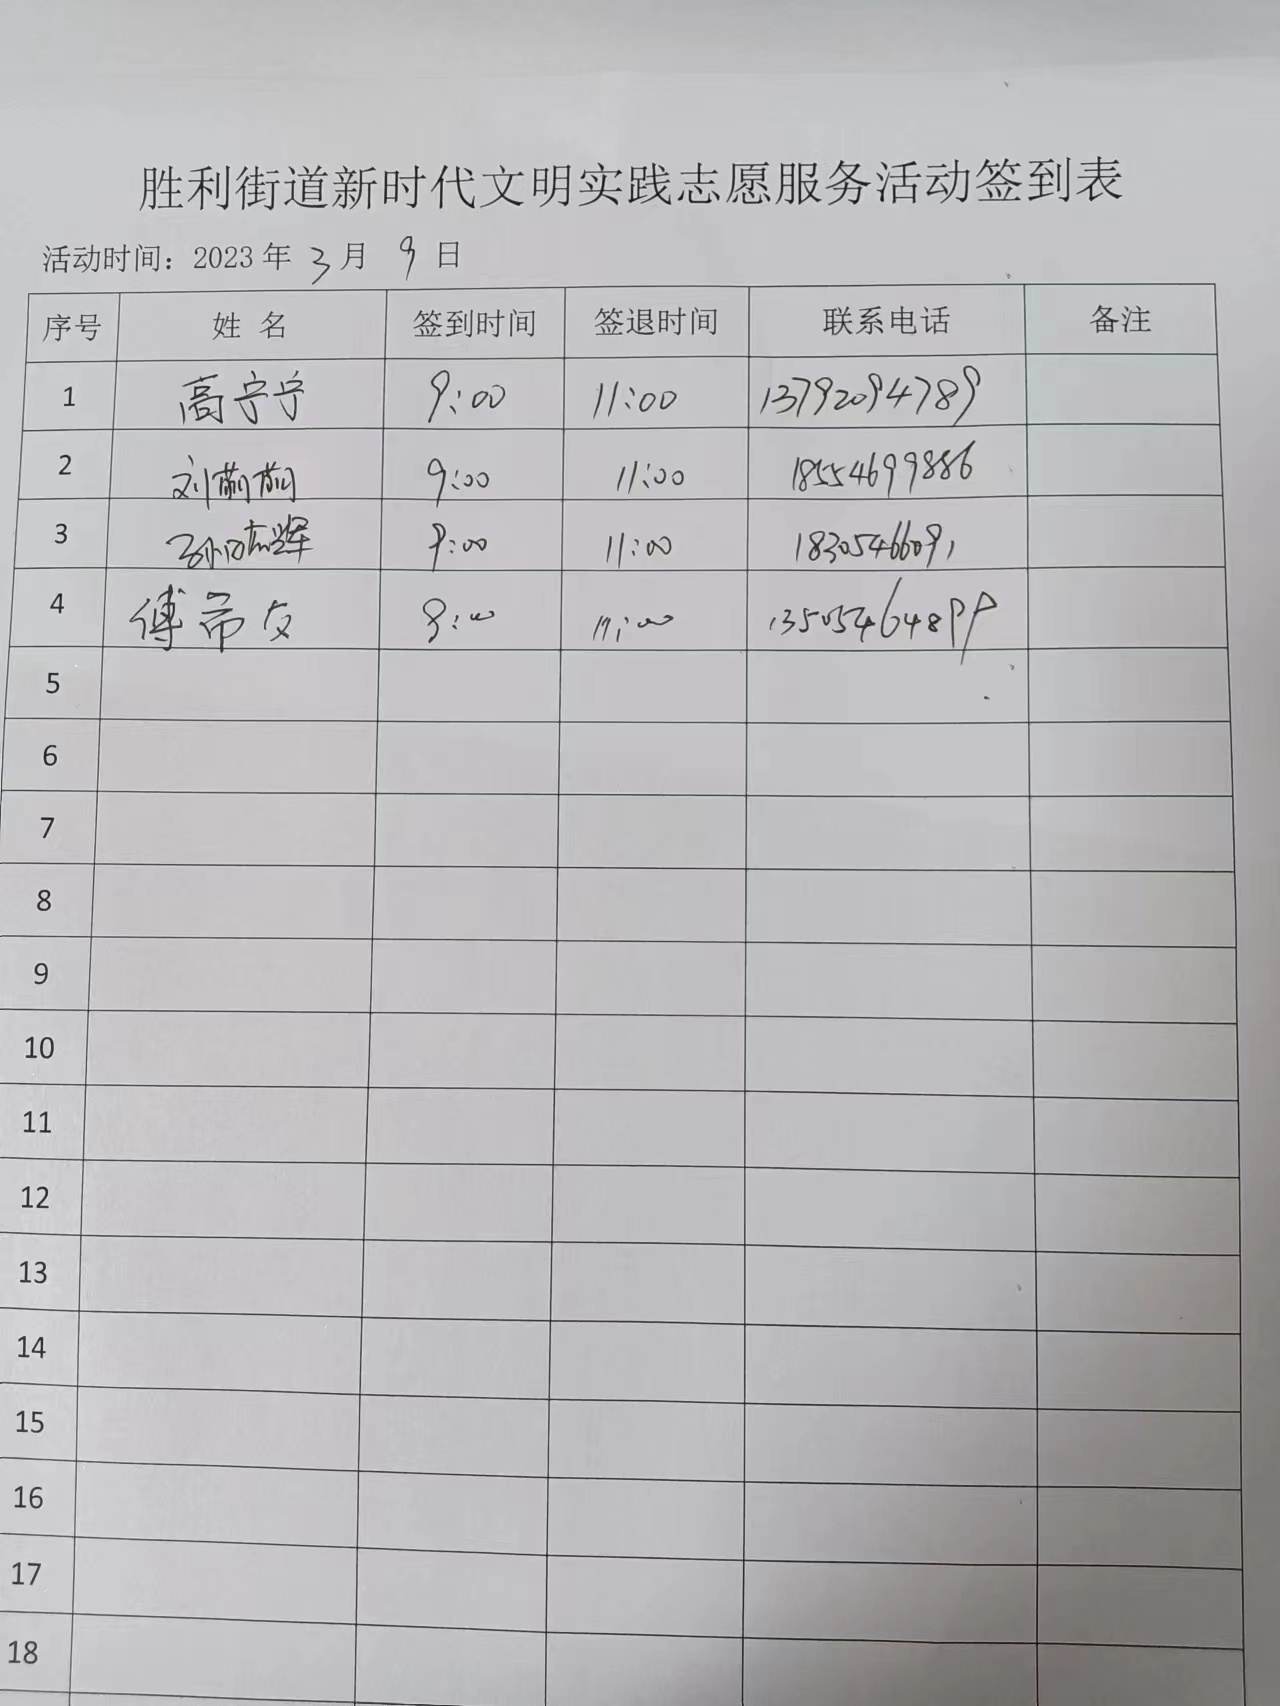 胜利街道新时代文明实践志愿服务活动签到表
活动时间：2023年 3月 9日
序号 姓 名 签到时间 签退时间 联系电话 备注
1 高宁宁 9:00 11:00 13792094789
2 刘萌萌 9:00 11:00 18554699886
3 9:00 11:00 18305466091
4 傅希友 9:00 11:00 13505464899
5
6
7
8
9
10
11
12
13
14
15
16
17
18